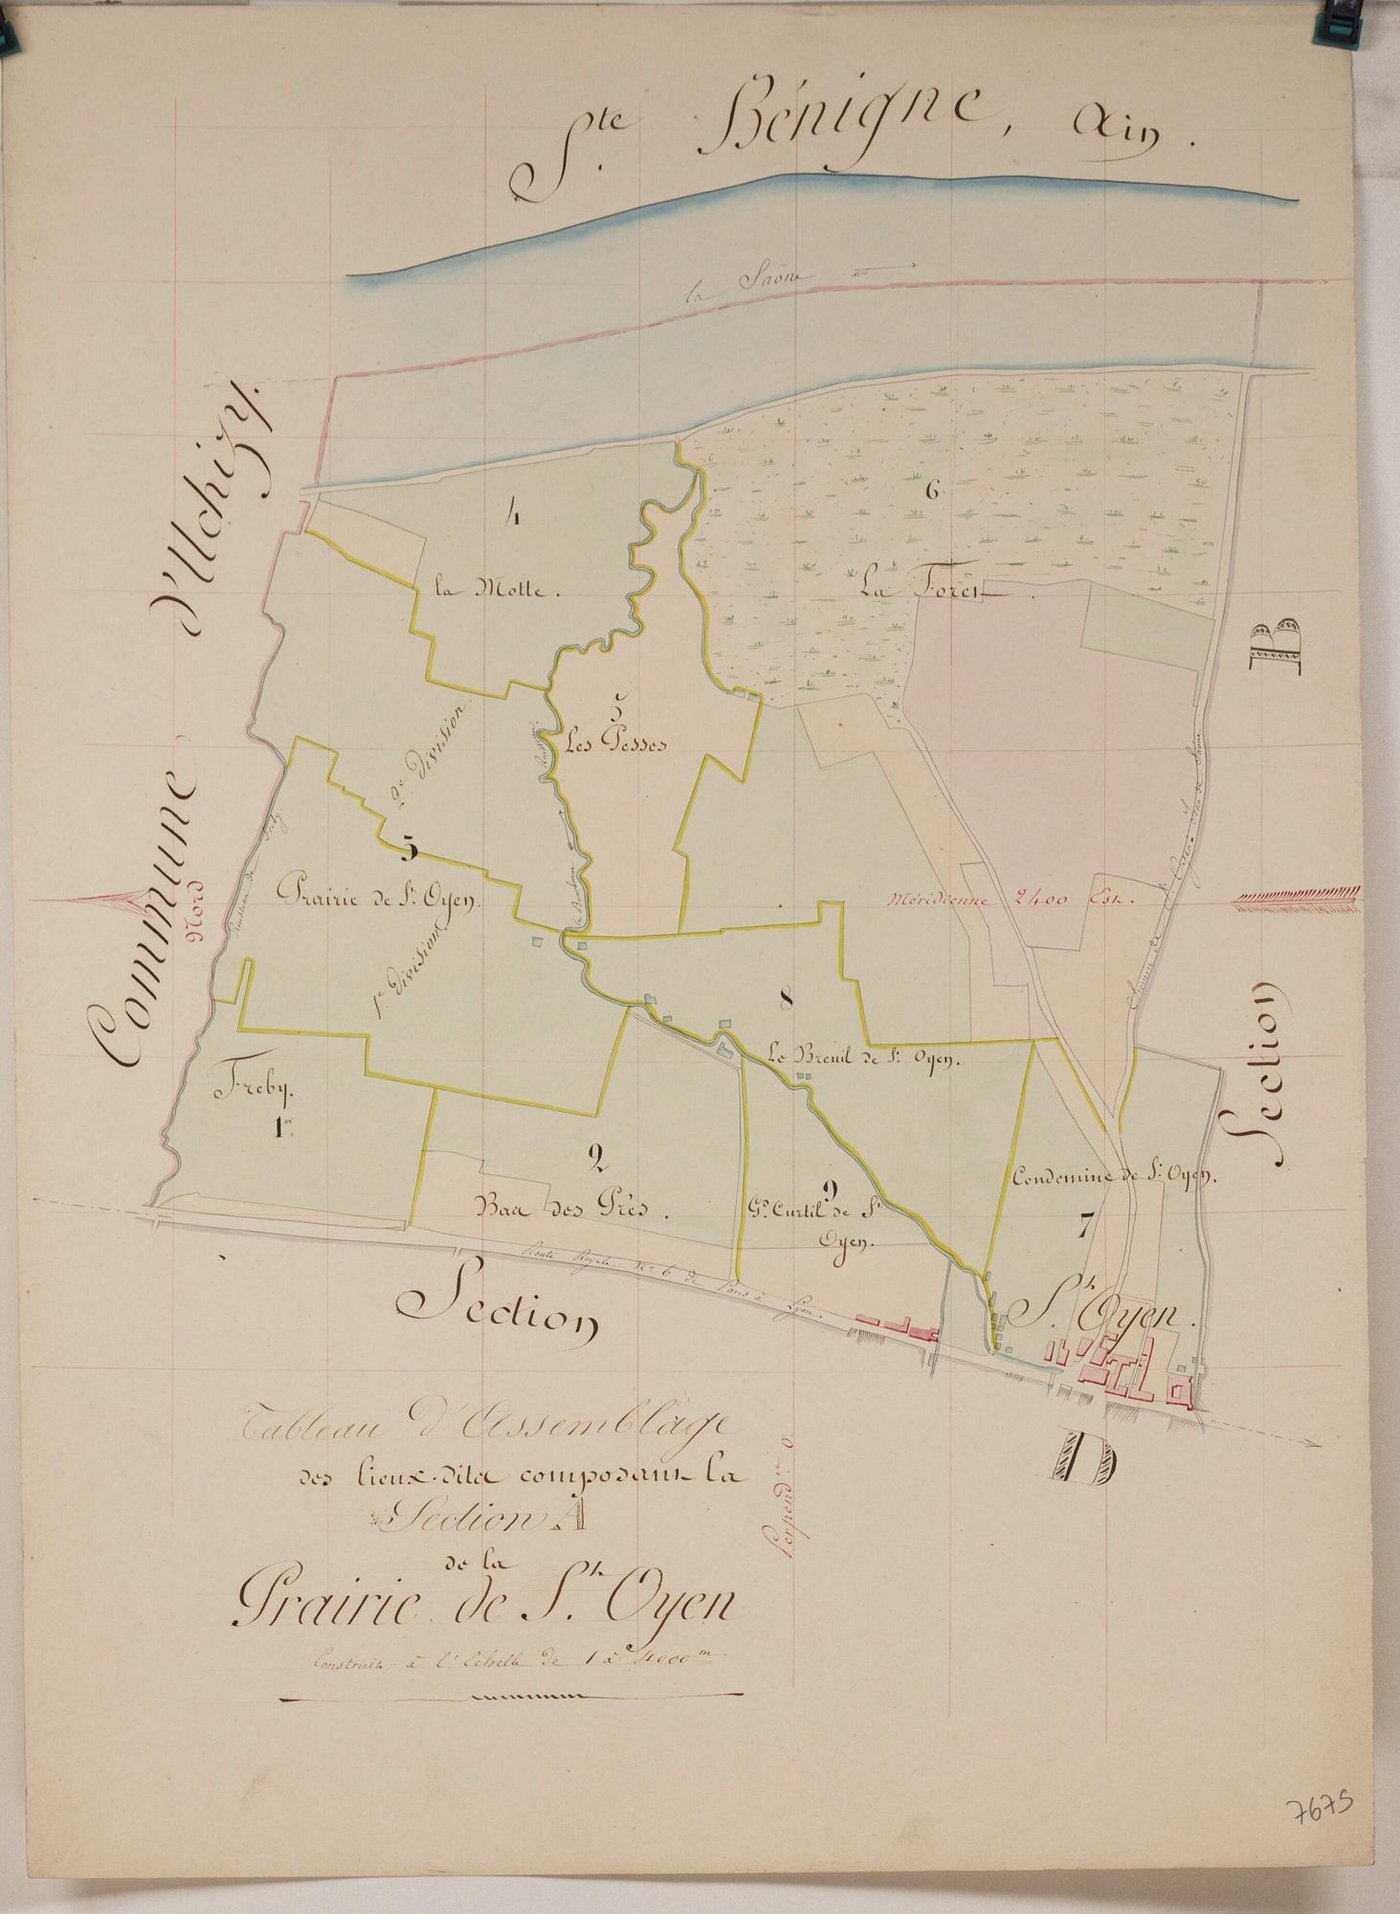 Ste Bénigne, Ain.
la Saône
Commune d'Uchizy.
4
la Motte.
6
La Forêt.
B
Section
5
Les Pesses
2e Division
5
Prairie de St. Oyen.
1e Division
Nord
Méridienne 2400 Est.
Ruisseau de
la Bourbonne
8
Le Breuil de St. Oyen.
Freby.
1er
2
Bas des Prés.
9
Gd. Curtil de St
Oyen.
Condemine de St. Oyen.
7
St. Oyen.
Route Royale No. 6 de Paris à Lyon.
Section
D
Tableau d'Assemblage
des lieux-dits composant la
Section A
de la
Prairie de St. Oyen
Construit à l'Echelle de 1 à 4000m
Perpendre 0
7675